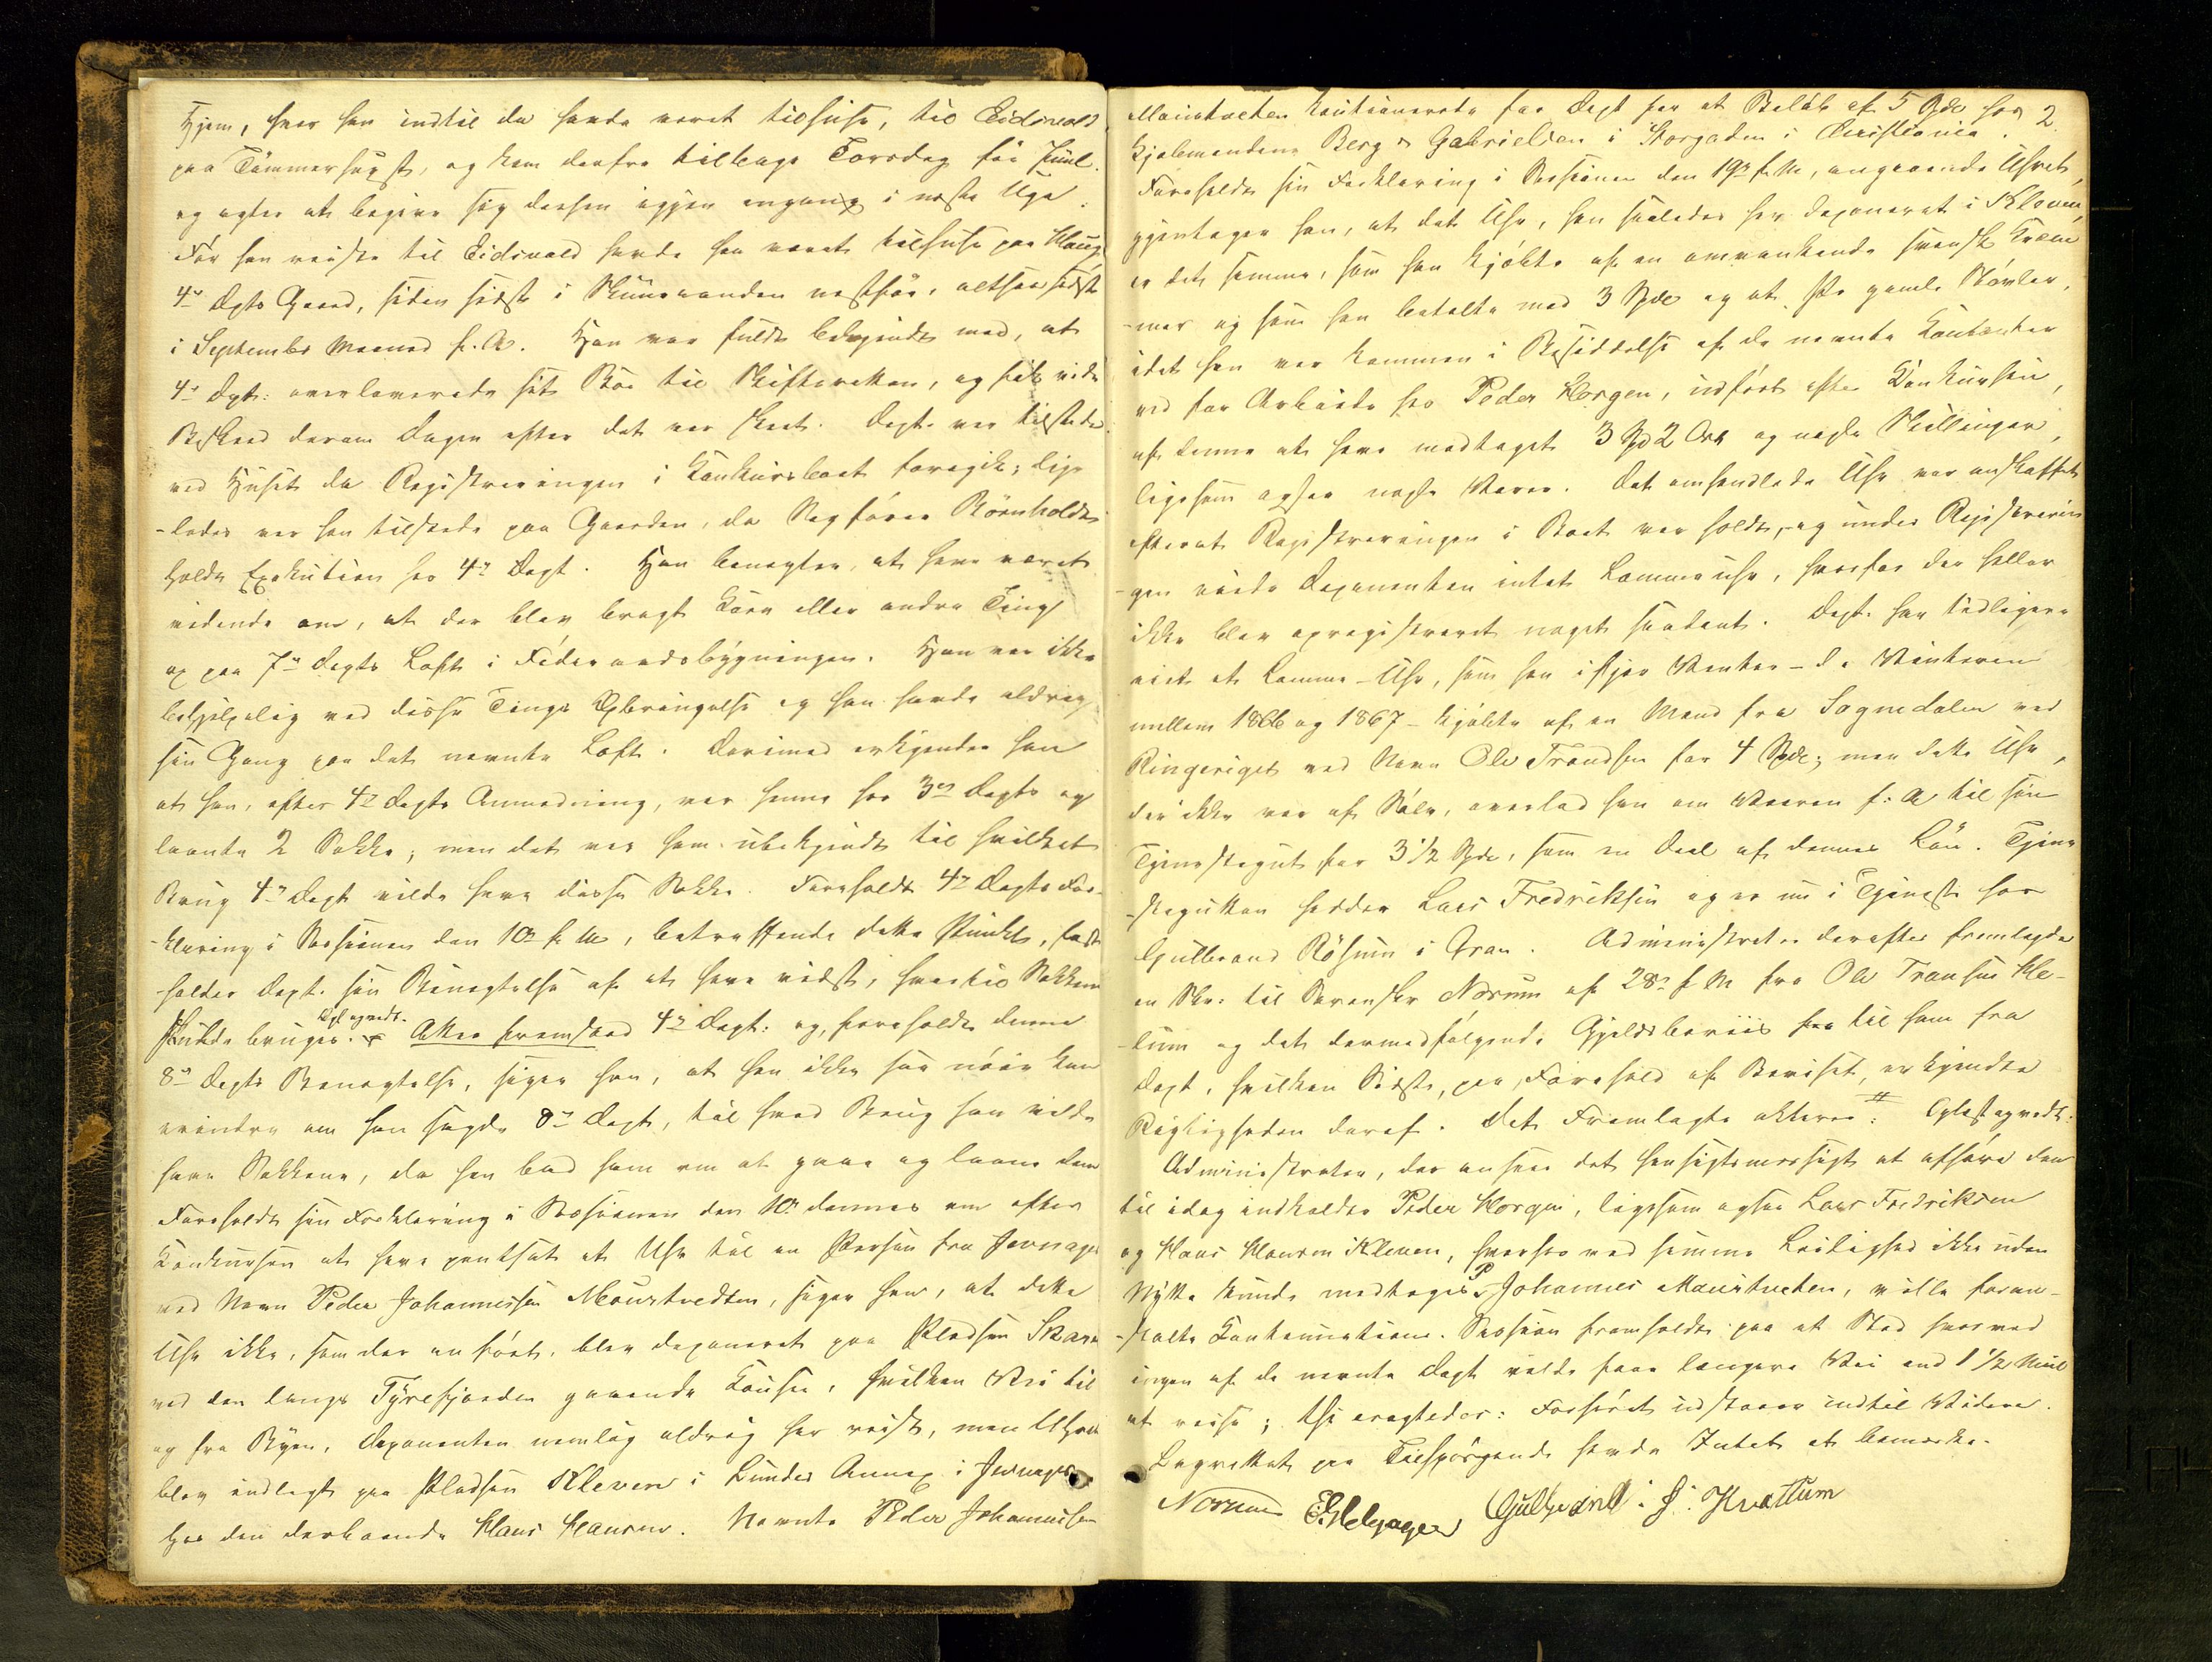 Hjem, hvor han indtil da havde været tilhuse, til Eidsvold
paa Tømmerhugst, og kom derfra tilbage Torsdag før Juul
og agter at begive sig derhen igjen engang i næste Uge.
Før han reiste til Eidsvold havde han været tilhuse paa Haug
4de Depts Gaard, siden sidst i Skuuraanden nestfør, altsaa sidst
i September Maaned f. A. Han var fuldt bekjendt med, at
4de Dept: overleverede sit Bo til Skifteretten, og fik vide
Beskeed derom Dagen efter det var skeet. Dept. var tilstede
ved Huset da Registreringen i Konkursboet foregik; lige
-ledes var han tilstede paa Gaarden, da Sagfører Børnholdt
holdt Exekution hos 4de Dept. Han benegter, at have været
vidende om, at der blev bragt Korn eller andre Ting
op paa 7de Depts Loft i Føderaadsbygningen. Han var ikke
behjelpelig ved disse Tings Opbringelse og han havde aldrig
sin Gang paa det nævnte Loft. Derimod erkjender han
at han, efter 4de Depts Anmodning, var henne hos 3die Depts og
laante 2 Sække; men det var ham ubekjendt til hvilket
Brug 4de Dept vilde have disse Sække. Foreholdt 4de Depts For-
-klaring i Sessionen den 10de f. M., betreffende dette Punkt, fast-
holder Dept. sin Benegtelse af at have vidst, hvortil Sækkene
skulde bruges. Opl. og vedt. Atter fremstod 4de Dept: og, foreholdt denne
8de Depts Benegtelse, siger han, at han ikke saa nøie kan
erindre om han sagde 8de Dept, til hvad Brug han vilde
have Sækkene, da han bad ham om at gaae og laane dem
Foreholdt sin Forklaring i Sessionen den 10de dennes om efter
Konkursen at have pantsat et Uhr til en Person fra Jevnager
ved Navn Peder Johannessen Mourtvedten, siger han, at dette
Uhr ikke, som der anført, blev deponeret paa Pladsen Skare
ved den langs Tyrefjorden gaaende Chaussee, hvilken Vei til
og fra Byen, Deponenten nemlig aldrig har reist, men Uhret
blev indlagt paa Pladsen Kleven i Lunder Annex i Jevnager
hos den derboende Hans Hansen. Nævnte Peder Johannessen
2.
Mourtvedten kautionerede for Dept for et Beløb af 5 Spd hos
Kjøbmændene Berg & Gabrielsen i Storgaden i Christiania.
Foreholdt sin Forklaring i Sessionen den 19de f. M., angaaende Uhret,
gjentager han, at det Uhr, han saaledes har deponeret i Kleven,
er det samme, som han kjøbte af en omvankende svensk Kræm-
-mer og som han betalte med 3 Spd og et Par gamle Støvler,
idet han var kommen i Besiddelse af de nævnte Kontanter
ved for Arbeide hos Peder Horgen, udført efter Konkursen,
af denne at have modtaget 3 Spd 2 Ort og nogle Skillinger,
ligesom ogsaa nogle Varer. Det omhandlede Uhr var anskaffet
efterat Registreringen i Boet var holdt, og under Registrerin-
-gen eiede Deponenten intet Lommeuhr, hvorfor der heller
ikke blev opregistreret noget saadant. Dept. har tidligere
eiet et Lomme-Uhr, som han ifjor Vinter - d. e. Vinteren
mellem 1866 og 1867 - kjøbte af en Mand fra Sognedalen ved
Ringeriget ved Navn Ole Trondsen for 4 Spd; men dette Uhr,
der ikke var af Sølv, overlod han om Vaaren f: A til sin
Tjenestegut for 3 1/2 Spd, som en Deel af dennes Løn. Tjene-
-stegutten hedder Lars Fredriksen og er nu i Tjeneste hos
Gulbrand Røsum i Gran. Administrator derefter fremlagde
en Skr. til Sorenskr Norum af 28de f M fra Ole Transen He-
-lum og det dermed følgende Gjeldsbeviis til ham fra
Dept, hvilken Sidste, paa Forehold af Beviset, erkjendte
Rigtigheden deraf. Det Fremlagte akteres: # Oplæst og vedt:
Administrator, der ansaae det hensigtsmæssigt at afhøre den
til idag indkaldte Peder Horgen, ligesom ogsaa Lars Fredriksen
og Hans Hansen Kleven, hvorhos ved samme Leilighed ikke uden
Nytte kunde medtages P. Johannes Mourtvedten, vilde foran-
-stalte Kontinuations-Session fremholdt paa et Sted hvorved
ingen af de nævnte Dept vilde faae længere Vei end 1 1/2 Miil
at reise; thi eragtedes: Forhøret udstaaer indtil Videre.
Lagrettet paa Tilspørgende havde Intet at bemærke.
Norum E. Helgager Gulbrand J. Hvattum